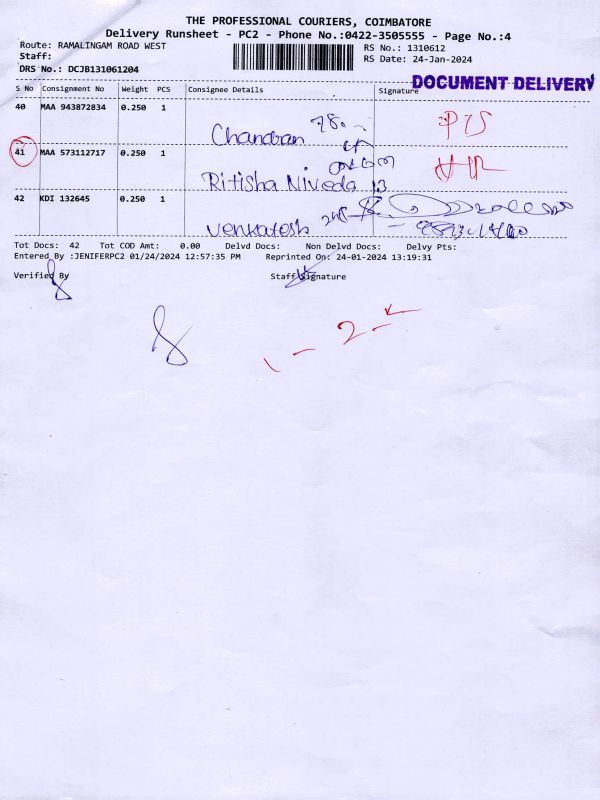 THE PROFESSIONAL COURIERS, COIMBATORE
Delivery Runsheet - PC2 - Phone No.:0422-3505555 - Page No.:4
Route: RAMALINGAM ROAD WEST
RS No.: 1310612
Staff:
RS Date: 24-Jan-2024
DRS No.: DCJB131061204
DOCUMENT DELIVERY
S No Consignment No Weight PCS Consignee Details Signature
40 MAA 943872834 0.250 1
Chandran 78.
41 MAA 573112717 0.250 1
Ritisha Niveda 13
42 KDI 132645 0.250 1
Venkatesh
Tot Docs: 42 Tot COD Amt: 0.00 Delvd Docs: Non Delvd Docs: Delvy Pts:
Entered By :JENIFERPC2 01/24/2024 12:57:35 PM Reprinted On: 24-01-2024 13:19:31
Verified By Staff Signature
2